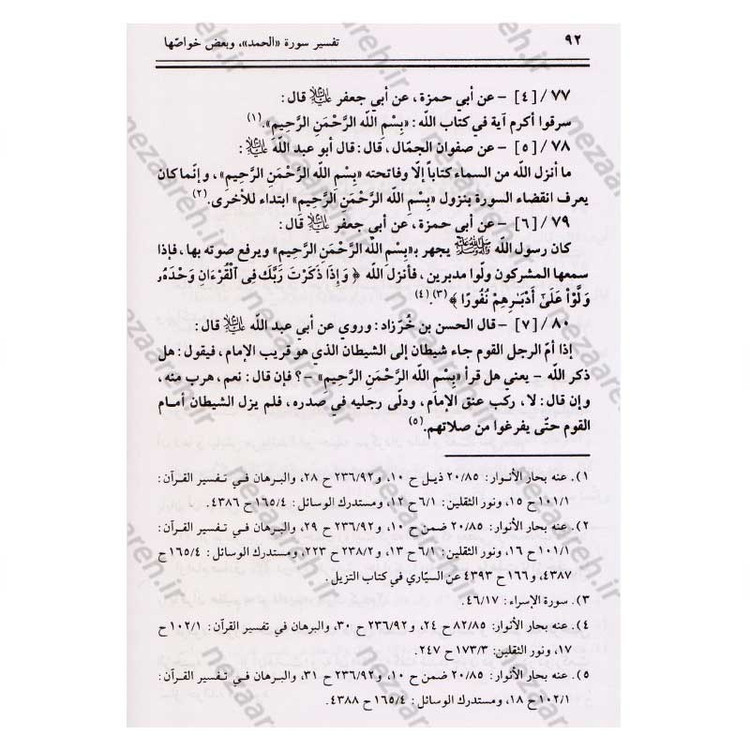 ٩٢ تفسير سورة «الحمد»، وبعض خواصّها
٧٧ / [٤] - عن أبي حمزة، عن أبي جعفر عليه السلام قال:
سرقوا أكرم آية في كتاب الله: «بِسْمِ الله الرَّحْمَنِ الرَّحِيمِ».(١)
٧٨ / [٥] - عن صفوان الجمّال، قال: قال أبو عبد الله عليه السلام:
ما أنزل الله من السماء كتاباً إلّا وفاتحته «بِسْمِ الله الرَّحْمَنِ الرَّحِيمِ»، وإنّما كان
يعرف انقضاء السورة بنزول «بِسْمِ الله الرَّحْمَنِ الرَّحِيمِ» ابتداء للأخرى.(٢)
٧٩ / [٦] - عن أبي حمزة، عن أبي جعفر عليه السلام قال:
كان رسول الله صلى الله عليه وآله وسلم يجهر بـ«بِسْمِ الله الرَّحْمَنِ الرَّحِيمِ» ويرفع صوته بها، فإذا
سمعها المشركون ولّوا مدبرين، فأنزل الله ﴿ وَإِذَا ذَكَرْتَ رَبَّكَ فِى ٱلْقُرْءَانِ وَحْدَهُۥ
وَلَّوْاْ عَلَىٰٓ أَدْبَـٰرِهِمْ نُفُورًا ﴾(٣).(٤)
٨٠ / [٧] - قال الحسن بن خُرّزاد: وروي عن أبي عبد الله عليه السلام قال:
إذا أمّ الرجل القوم جاء شيطان إلى الشيطان الذي هو قريب الإمام، فيقول: هل
ذكر الله - يعني هل قرأ «بِسْمِ الله الرَّحْمَنِ الرَّحِيمِ» -؟ فإن قال: نعم، هرب منه،
وإن قال: لا، ركب عنق الإمام، ودلّى رجليه في صدره، فلم يزل الشيطان أمام
القوم حتّى يفرغوا من صلاتهم.(٥)
١). عنه بحار الأنوار: ٢٠/٨٥ ذيل ح ١٠، و٢٣٦/٩٢ ح ٢٨، والبرهان في تفسير القرآن:
١٠١/١ ح ١٥، ونور الثقلين: ٦/١ ح ١٢، ومستدرك الوسائل: ١٦٥/٤ ح ٤٣٨٦.
٢). عنه بحار الأنوار: ٢٠/٨٥ ضمن ح ١٠، و٢٣٦/٩٢ ح ٢٩، والبرهان في تفسير القرآن:
١٠١/١ ح ١٦، ونور الثقلين: ٦/١ ح ١٣، و٢٣٨/٢ ح ٢٢٣، ومستدرك الوسائل: ١٦٥/٤ ح
٤٣٨٧، و١٦٦ ح ٤٣٩٣ عن السيّاري في كتاب التزيل.
٣). سورة الإسراء: ٤٦/١٧.
٤). عنه بحار الأنوار: ٨٢/٨٥ ح ٢٤، و٢٣٦/٩٢ ح ٣٠، والبرهان في تفسير القرآن: ١٠٢/١ ح
١٧، ونور الثقلين: ١٧٣/٣ ح ٢٤٧.
٥). عنه بحار الأنوار: ٢٠/٨٥ ضمن ح ١٠، و٢٣٦/٩٢ ح ٣١، والبرهان في تفسير القرآن:
١٠٢/١ ح ١٨، ومستدرك الوسائل: ١٦٥/٤ ح ٤٣٨٨.
nezaareh.ir